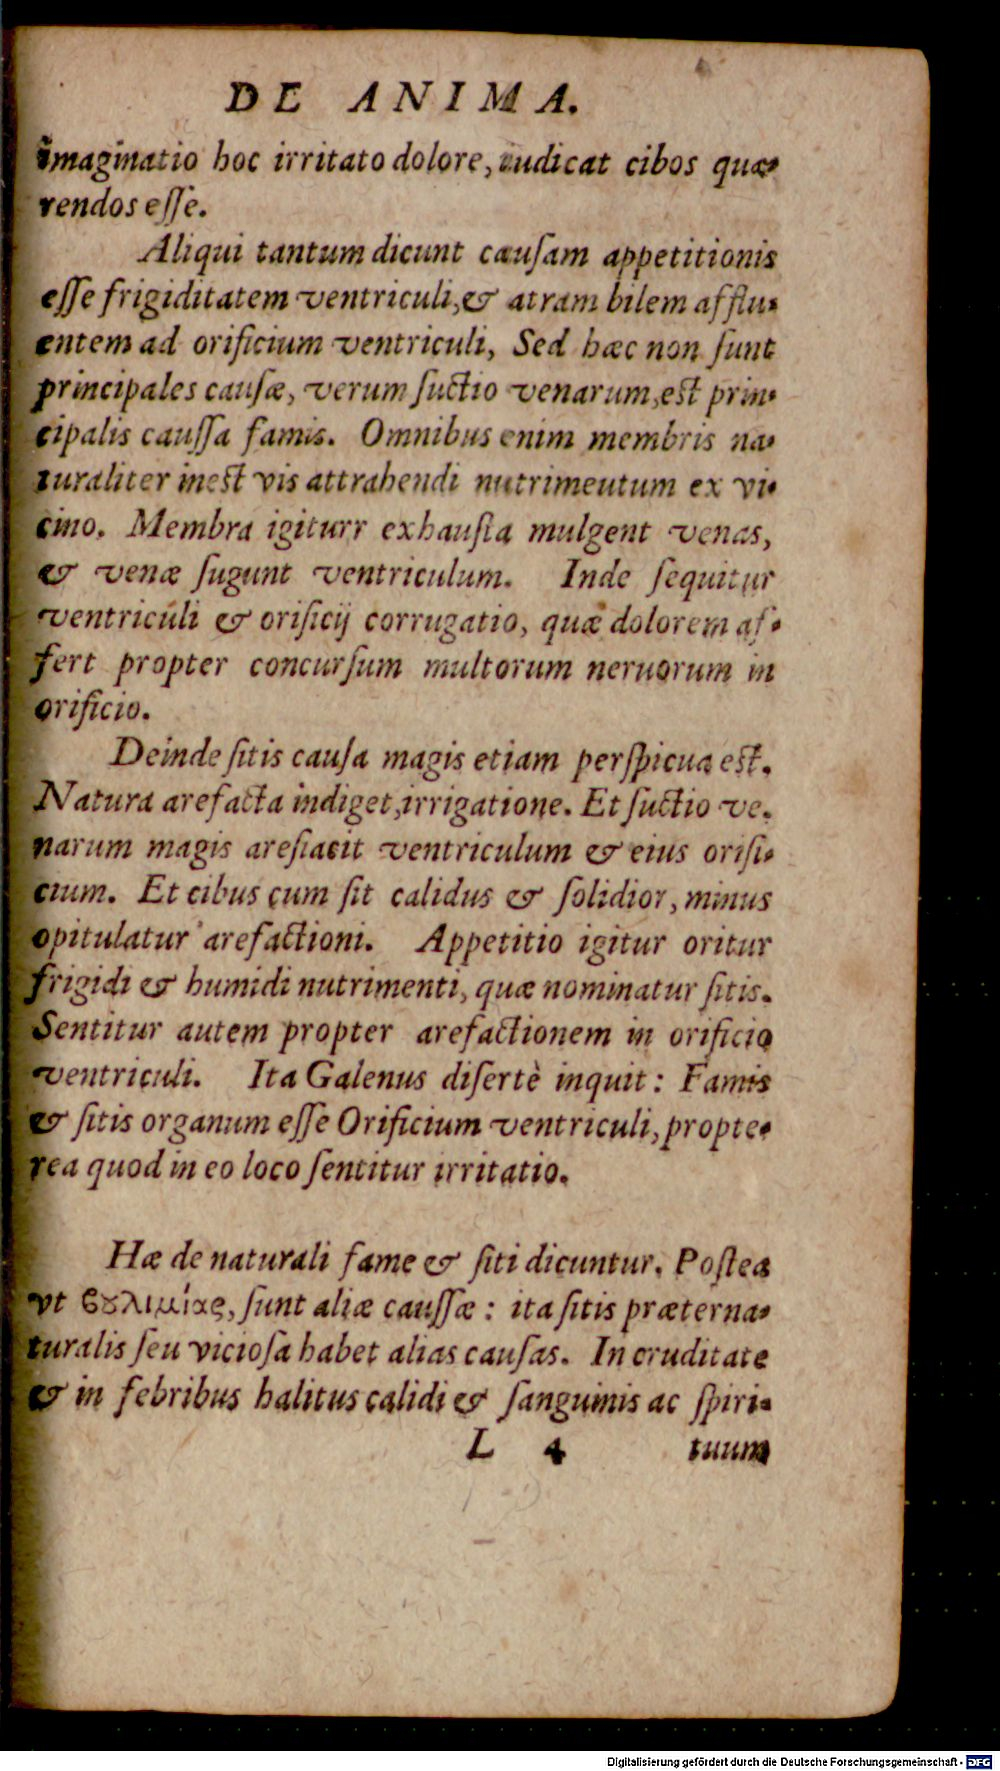 DE ANIMA.
imaginatio hoc irritato dolore, iudicat cibos quæ-
rendos eſſe.
Aliqui tantum dicunt cauſam appetitionis
eſſe frigiditatem ventriculi, & atram bilem afflu-
entem ad orificium ventriculi, Sed hæc non ſunt
principales cauſæ, verum ſuctio venarum, eſt prin-
cipalis cauſſa famis. Omnibus enim membris na-
turaliter ineſt vis attrahendi nutrimeutum ex vi-
cino. Membra igiturr exhauſta mulgent venas,
& venæ ſugunt ventriculum. Inde ſequitur
ventriculi & orificij corrugatio, quæ dolorem af-
fert propter concurſum multorum neruorum in
orificio.
Deinde ſitis cauſa magis etiam perſpicua eſt.
Natura arefacta indiget, irrigatione. Et ſuctio ve-
narum magis arefiacit ventriculum & eius orifi-
cium. Et cibus cum ſit calidus & ſolidior, minus
opitulatur arefactioni. Appetitio igitur oritur
frigidi & humidi nutrimenti, quæ nominatur ſitis.
Sentitur autem propter arefactionem in orificio
ventriculi. Ita Galenus diſertè inquit: Famis
& ſitis organum eſſe Orificium ventriculi, propte-
rea quod in eo loco ſentitur irritatio.
Hæ de naturali fame & ſiti dicuntur. Poſtea
vt ϐȣλιμίας, ſunt aliæ cauſſæ: ita ſitis præterna-
turalis ſeu vicioſa habet alias cauſas. In cruditate
& in febribus halitus calidi & ſanguinis ac ſpiri-
L 4 tuum
Digitalisierung gefördert durch die Deutsche Forschungsgemeinschaft - DFG